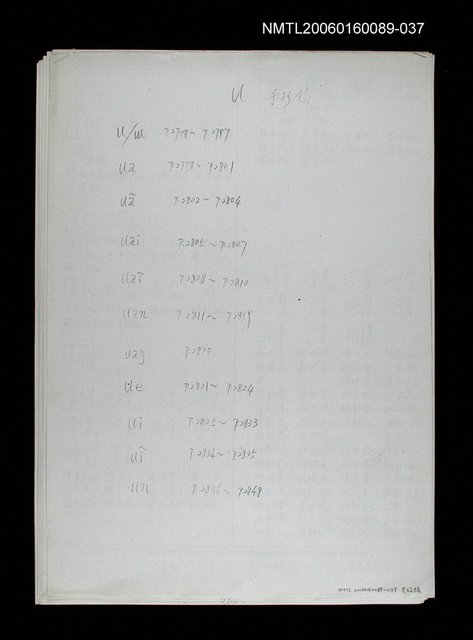 NMTL20060160089-037
U 手抄稿
u/ɯ P.2708~P.2787
ua P.2788~P.2801
uã P.2802~P.2804
uai P.2805~P.2807
uaĩ P.2808~P.2810
uan P.2811~P.2819
uaŋ P.2820
ue P.2821~P.2824
ui P.2825~P.2833
uĩ P.2834~P.2835
un P.2836~P.2848
NMTL 20060160089-037